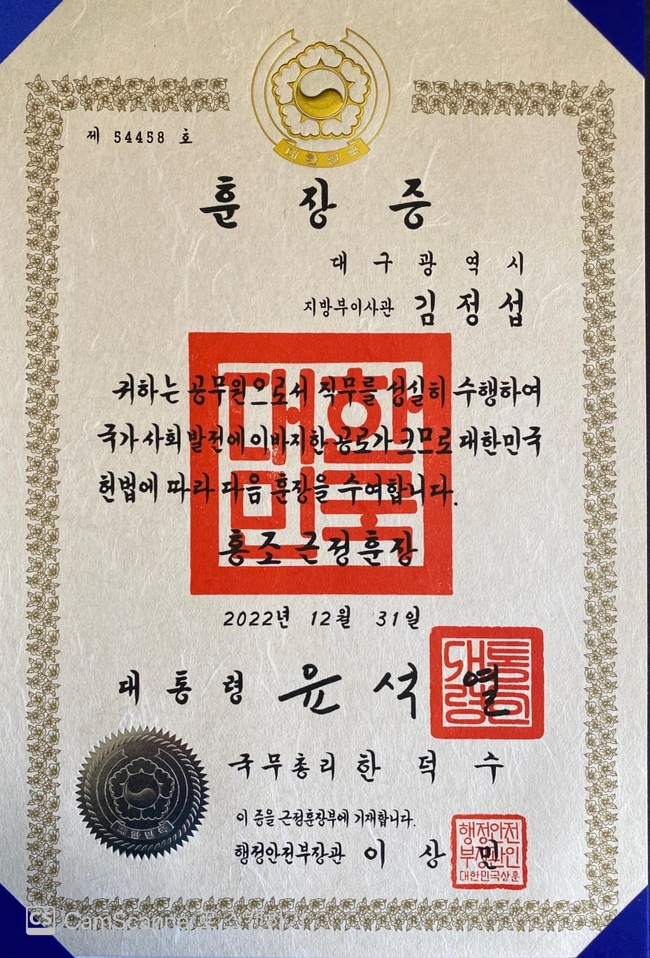 대한민국
제 54458 호
훈 장 증
대 구 광 역 시
지방부이사관 김 정 섭
귀하는 공무원으로서 직무를 성실히 수행하여
국가 사회 발전에 이바지한 공로가 크므로 대한민국
헌법에 따라 다음 훈장을 수여합니다.
대한
민국
홍조근정훈장
2022년 12월 31일
대 통 령 윤 석 열
국무총리 한 덕 수
이 증을 근정훈장부에 기재합니다.
행정안전부장관 이 상 민
행정안전
부장관인
대한민국상훈
CS CamScanner로 스캔하기